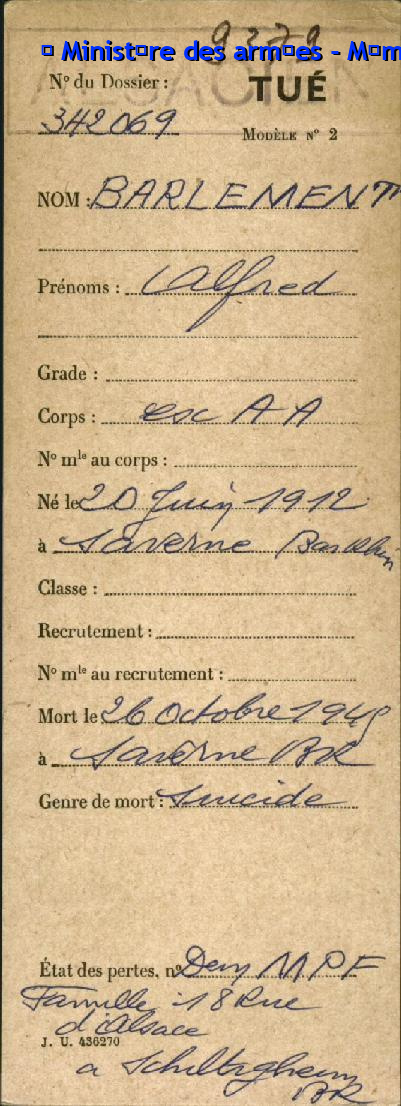 9379
▯ Minist▯re des arm▯es - M▯m
ALSACIEN
N° du Dossier :
TUÉ
342069
MODÈLE N° 2
NOM : BARLEMENT
Prénoms : Alfred
Grade :
Corps : esc A A
N° mle au corps :
Né le 20 Juin 1912
à Saverne Bas Rhin
Classe :
Recrutement :
N° mle au recrutement :
Mort le 26 Octobre 1945
à Saverne BR
Genre de mort : Suicide
État des pertes, n° Dem MPF
Famille 18 Rue
d'Alsace
J. U. 436270
a Schiltigheim
BR